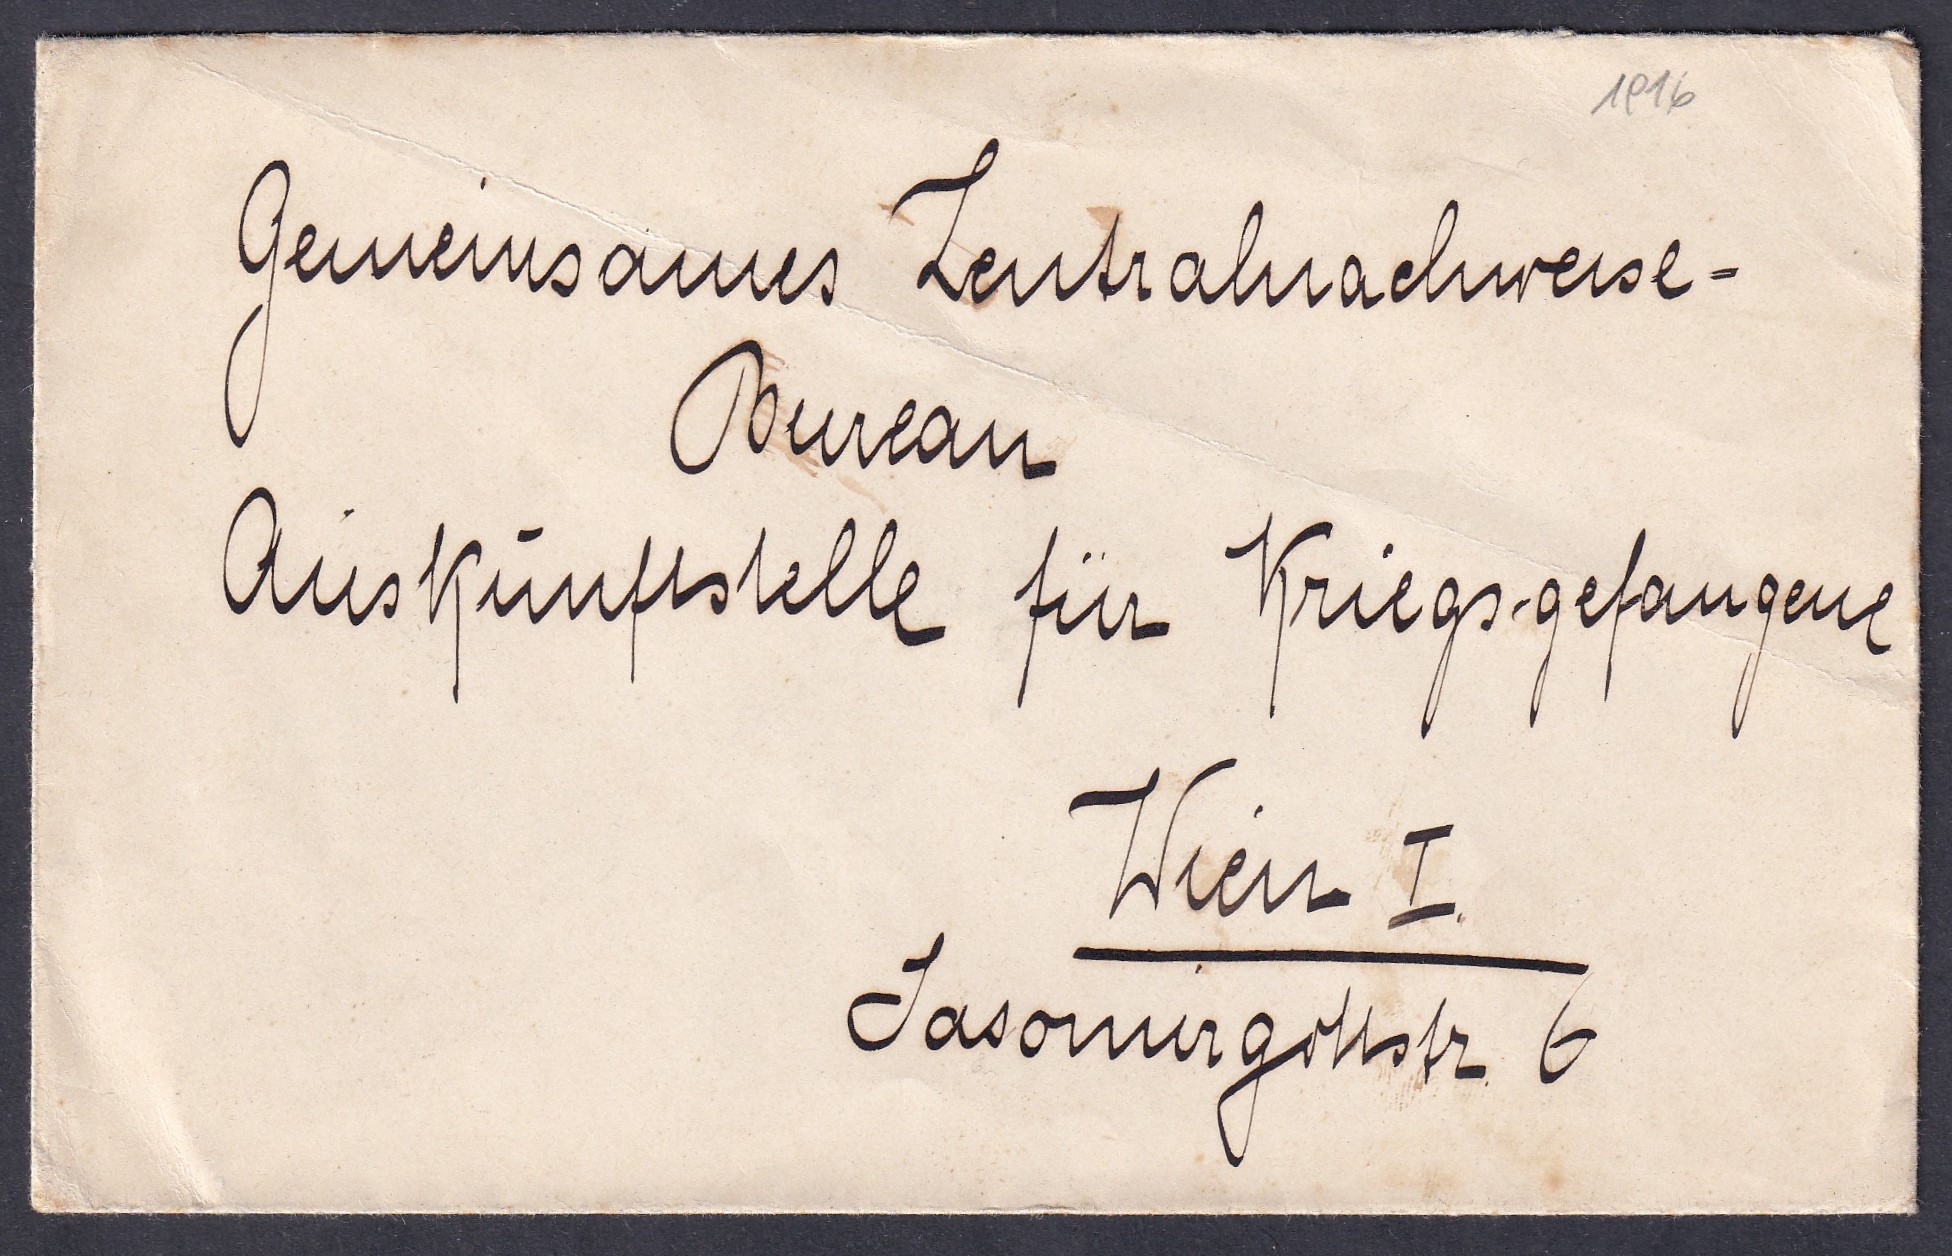 1916
Gemeinsames Zentralnachweise-
Bureau
Auskunftstelle für Kriegs-gefangene
Wien I.
Jasomirgottstr. 6